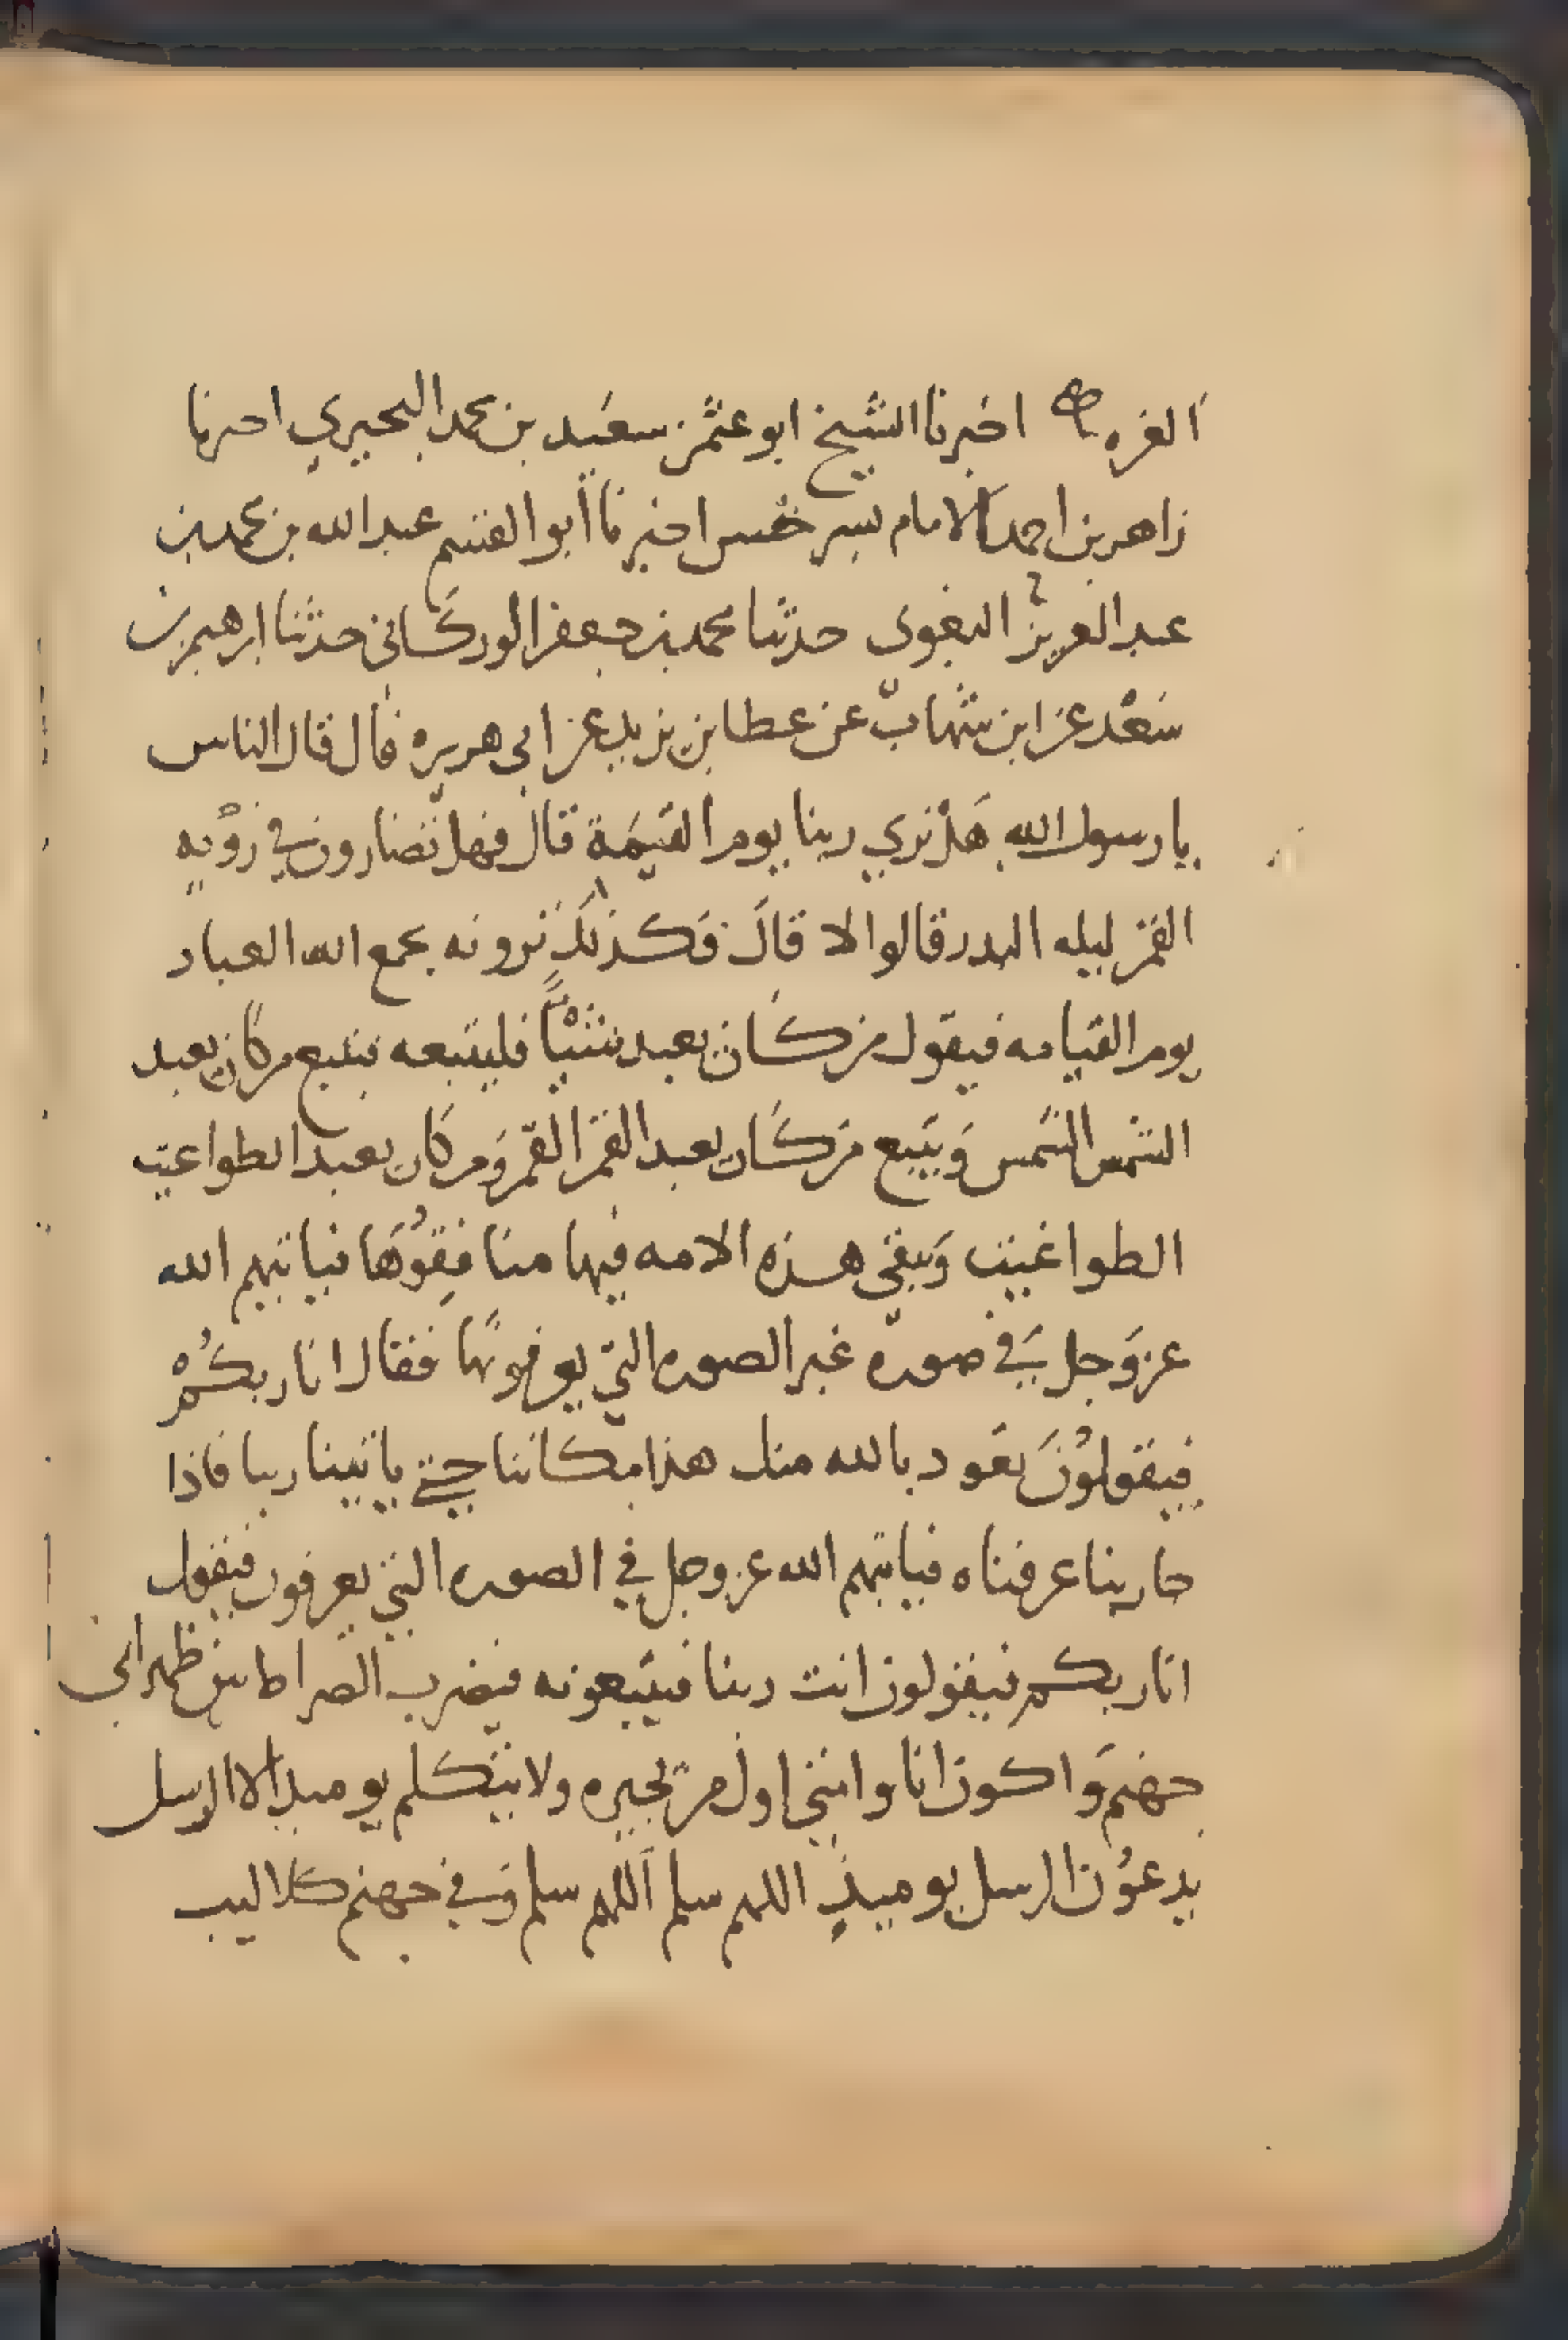 الغره اخبرنا الشيخ ابو عثمن سعيد بن محمد البحيري اخبرنا
زاهر بن احمد الامام بسرخس اخبرنا أبو القسم عبد الله بن محمد بن
عبد العزيز البغوى حدثنا محمد بن جعفر الوركاني حدثنا ابرهيم بن
سَعْد عن ابن شهاب عن عطا بن يزيد عن ابي هريره قال قال الناس
يا رسول الله هَلْ نري ربنا يوم القيمَة قال فهل تضارون في رؤيه
القمر ليله البدر قالوا لا قالَ فكذلكَ ترونه يجمع الله العباد
يوم القيامه فيقول من كان يعبد شيْاً فليتبعه فيتبع من كان يعبد
الشمس الشمس وَيتبع من كان يعبد القمر القمر وَمن كان يعبد الطواغيت
الطواغيت وَتبقى هذه الامه فيها منافِقوُهَا فياتيهم الله
عز وَجل في صوره غير الصوره التي يعرفونها فقال انا ربكُمْ
فيقولوُنَ نعَوذ بالله منك هذا مكاننا حتي ياتينا ربنا فاذا
جا ربنا عرفناه فياتيهم الله عز وجل في الصوره التي يعرفون فيقول
انا ربكم فيقولون انت ربنا فيتبعونه فيضرب الصراط بين ظهراني
جهنم وَاكون انا وامتي اول من يجيزه ولا يتكلم يوميذ الا الرسل
يدعوُن الرسل يوميذٍ اللهم سلم اَللهم سلم وَفي جهنم كلاليب